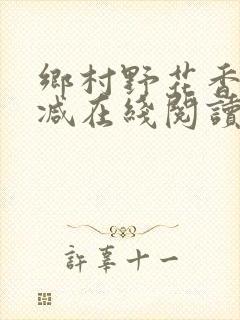 鄉村野花香
减在綫閱讀
許辜十一